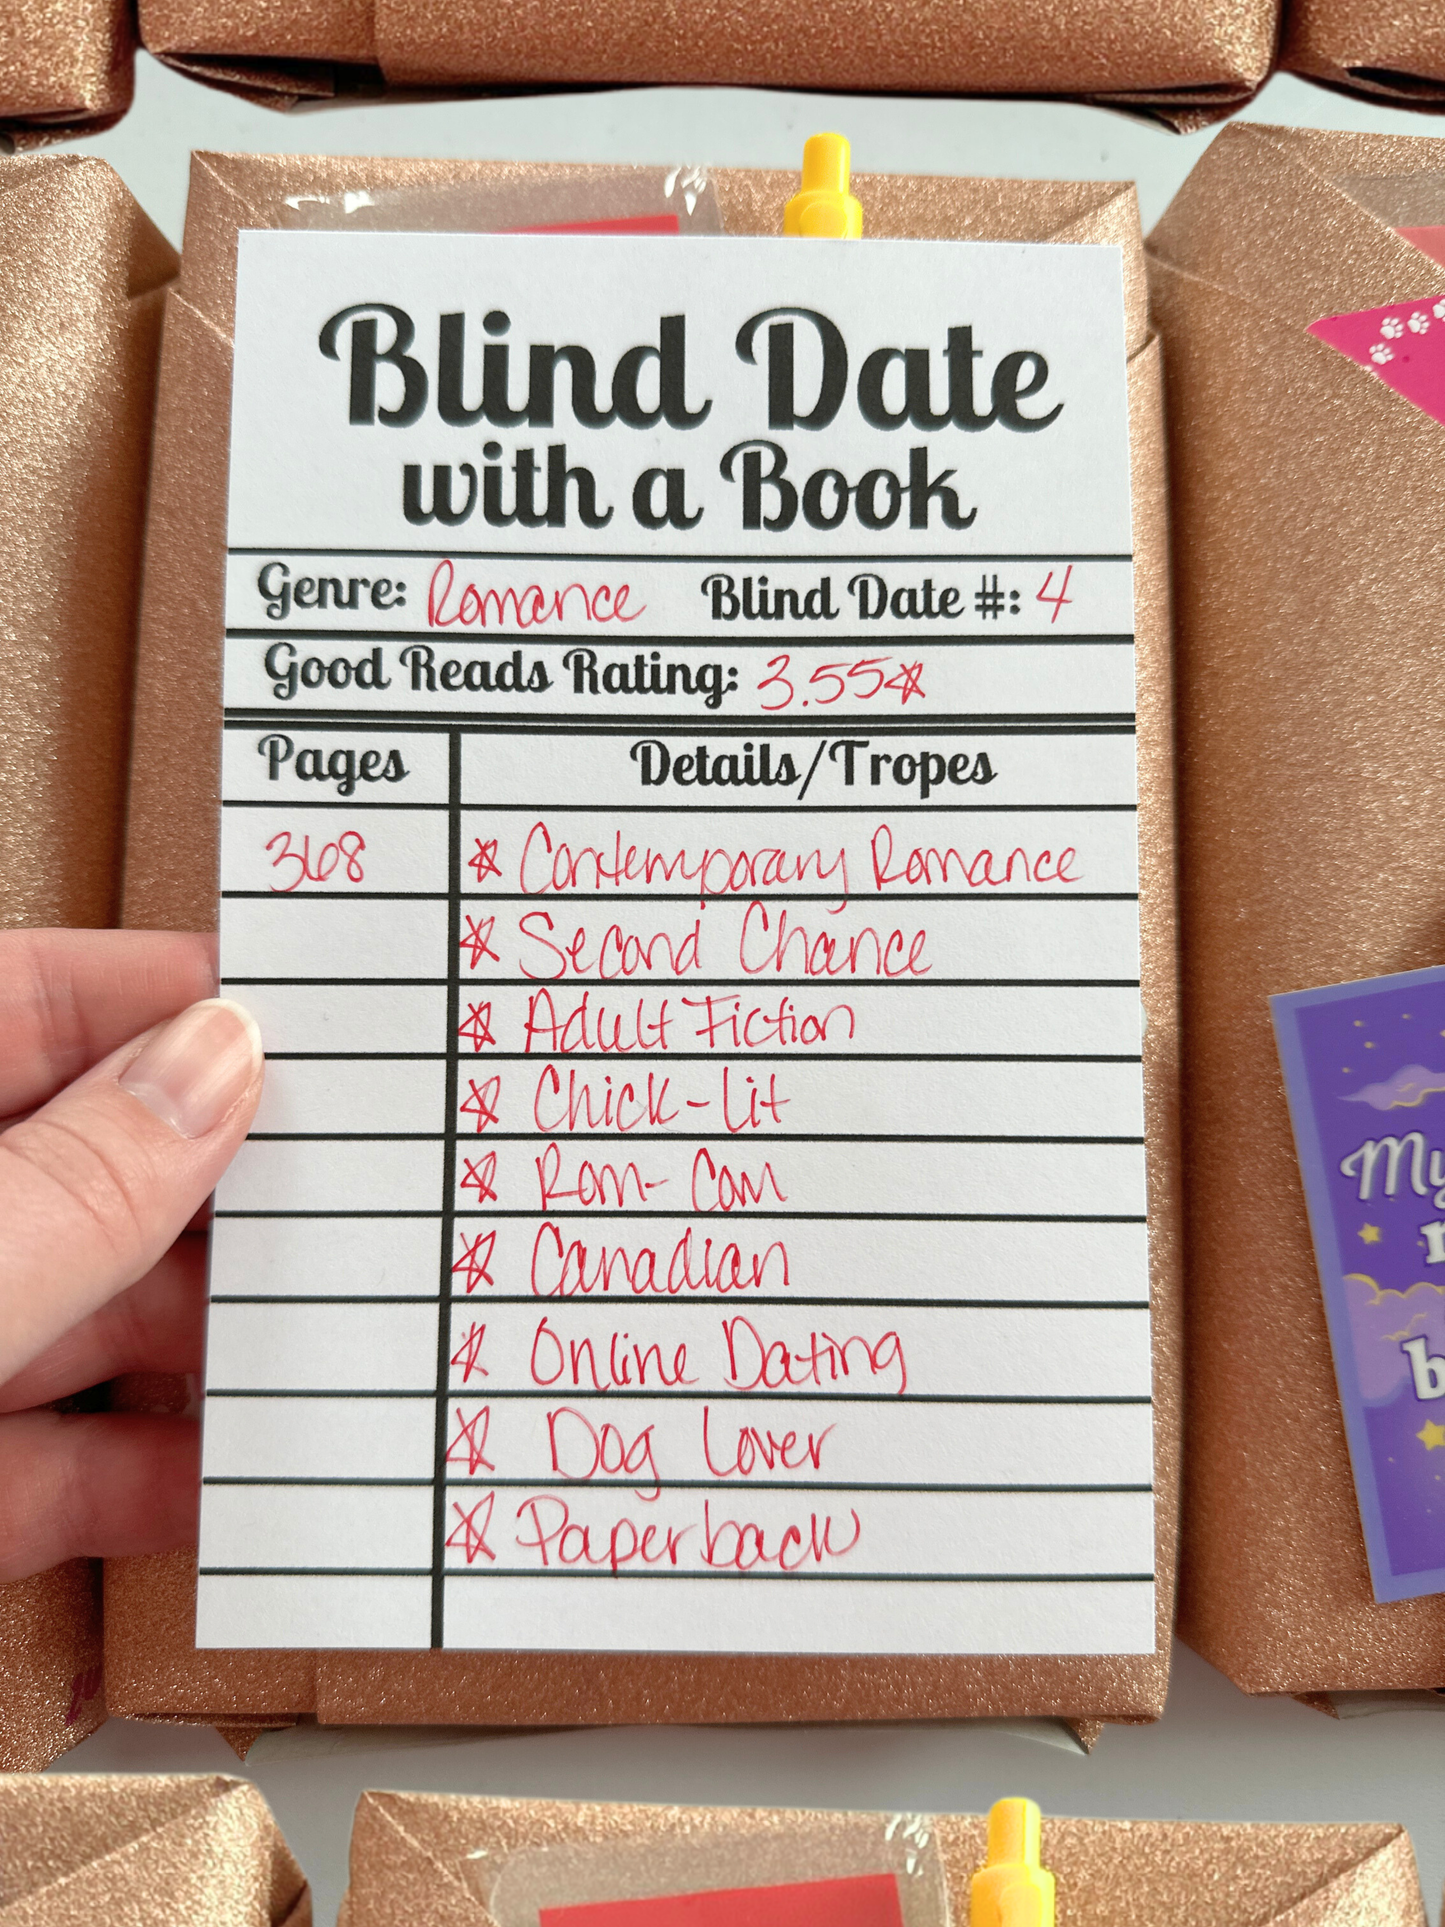 Blind Date
with a Book
Genre: Romance Blind Date #: 4
Good Reads Rating: 3.55☆
Pages Details/Tropes
368 ☆ Contemporary Romance
☆ Second Chance
☆ Adult Fiction
☆ Chick-Lit
☆ Rom-Com
☆ Canadian
☆ Online Dating
☆ Dog Lover
☆ Paperback
My